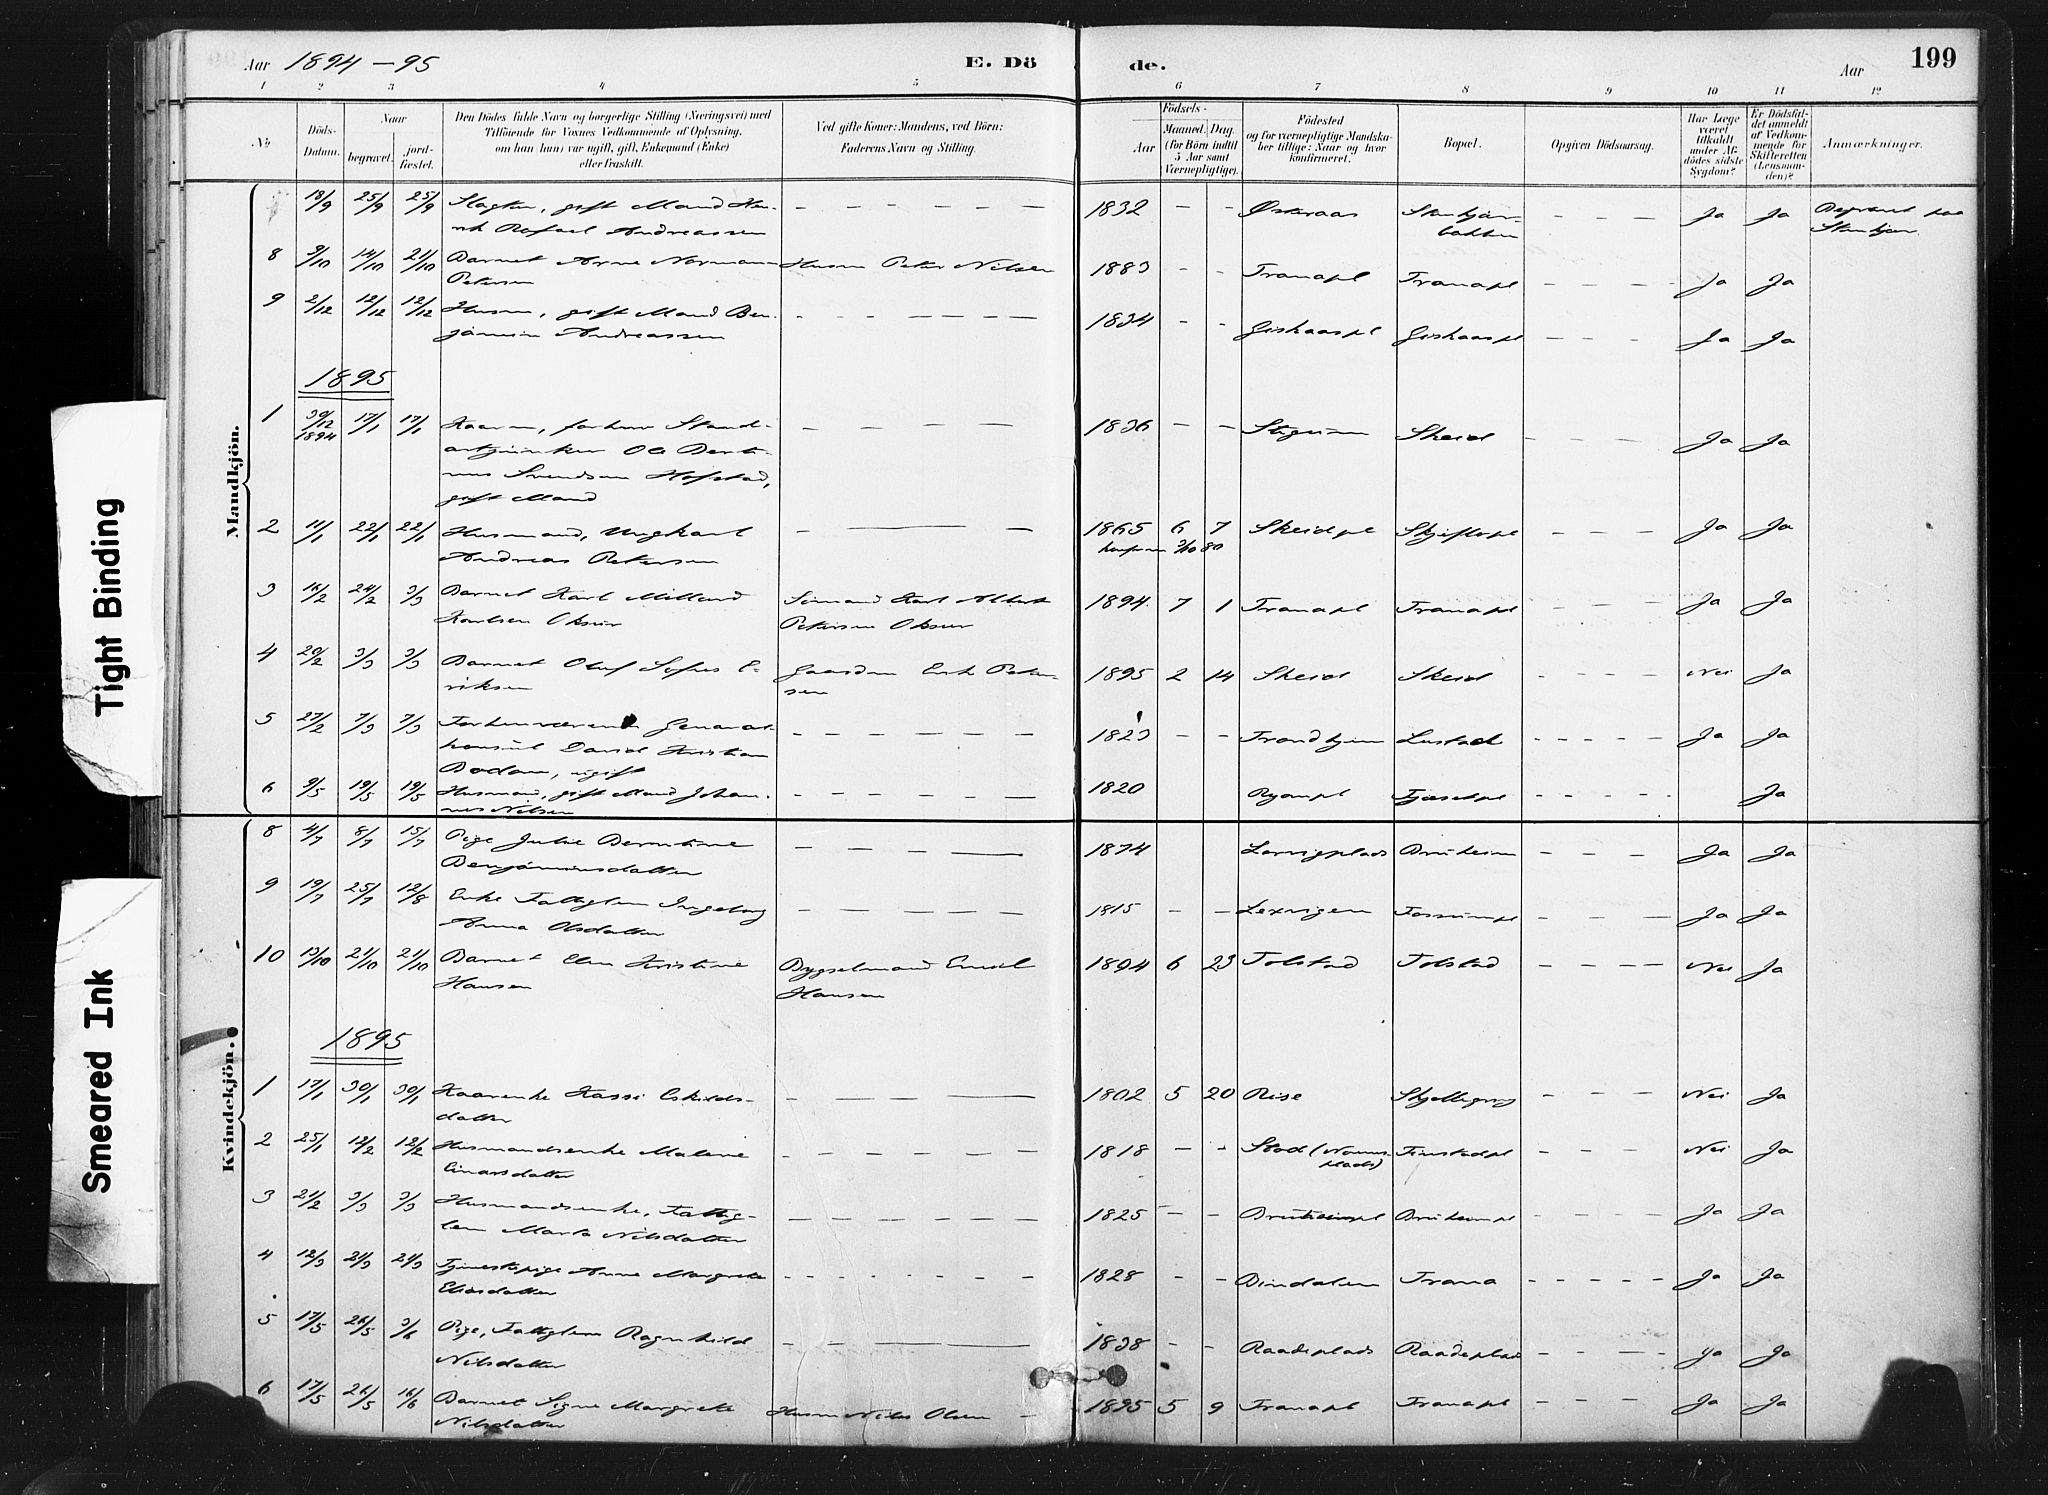 Aar 1894-95 E. Dö de. Aar 199
1 2 3 4 5 6 7 8 9 10 11 12
No
Döds-Datum.
Naar
begravet.
jord-fæstet.
Den Dödes fulde Navn og borgerlige Stilling (Næringsvei) med
Tilföiende for Voxnes Vedkommende af Oplysning,
om han (hun) var ugift, gift, Enkemand (Enke)
eller fraskilt.
Ved gifte Koner: Mandens, ved Börn:
Faderens Navn og Stilling.
Födsels-
Aar
Maaned. Dag.
(for Börn indtil
5 Aar samt
Værnepligtige).
Födested
og for værnepligtige Mandska-
ber tillige: Naar og hvor
konfirmeret.
Bopæl.
Opgiven Dödsaarsag.
Har Læge
været
tilkaldt
under Af-
dödes sidste
Sygdom?
Er Dödsfal-
det anmeldt
af Vedkom-
mende for
Skifteretten
(Lensman-
den)?
Anmærkninger.
Mandkjön.
18/9 25/9 25/9 Slagter, gift Mand Hen- 1832 - - Østeraas Ja Ja
rik Rafael Andreassen
8 9/10 14/10 21/10 Barnet Arne Normann Husm Peter Nilsen 1883 - - Tranapl Tranapl Ja Ja
Petersen
9 2/12 12/12 12/12 Husm, gift Mand Ben- 1834 - - Giskaaspl Giskaaspl Ja Ja
jamin Andreassen
1895
1 30/12 1894 17/1 17/1 1836 - - Skeid Ja Ja
Ole Berti-
nus Svendsen Hofstad,
gift Mand
2 11/1 22/1 22/1 Husmand, Ungkarl 1865 6 7 Skeidpl Skjeftepl Ja Ja
Andreas Petersen
3 16/2 24/2 3/3 Barnet Karl Karl Albert 1894 7 1 Tranapl Tranapl Ja Ja
Karlsen Petersen
4 20/2 3/3 3/3 Barnet Oluf E- Gaardm Erik Peter- 1895 2 14 Skeid Skeid Nei Ja
riksen sen
5 27/2 7/3 7/3 Forhenværende General- 1823 - - Trondhjem Lustad Ja Ja
konsul David Kristian
ugift
6 9/5 19/5 19/5 Husmand, gift Mand Johan- 1820 Ja
nes Nilsen
Kvindekjön.
8 4/7 8/7 15/7 Pige Julie Berntine 1874 Bruheim Ja Ja
Benjaminsdatter
9 19/7 25/7 12/8 Enke Fattiglem Ingeborg 1815 - - Lexvigen Fossumpl Ja Ja
Anna Olsdatter
10 13/10 21/10 21/10 Barnet Elen Kristine Bygselmand Emil 1894 6 23 Tolstad Tolstad Nei Ja
Hansen Hansen
1895
1 17/1 30/1 30/1 Kaarenke Eskilds- 1802 5 20 Reise Nei Ja
datter
2 25/1 12/2 12/2 Husmandsenke Malene 1818 - - Stod Nei Ja
Einarsdatter
3 21/2 3/3 3/3 Husmandsenke, Fattig- 1825 - - Bruheimpl Bruheimpl Ja Ja
lem Marta Nilsdatter
4 12/3 21/3 21/3 Tjenestepige Anne Margrete 1828 - - Bindalen Trana Ja Ja
Eliasdatter
5 17/5 26/5 3/6 Pige, Fattiglem Ragnhild 1838 - - Raadeplads Raadeplad Ja Ja
Nilsdatter
6 17/5 26/5 16/6 Barnet Signe Margrete Husm Nils Olsen - 1895 5 9 Tranapl Tranapl Ja Ja
Nilsdatter
Tight Binding
Smeared Ink